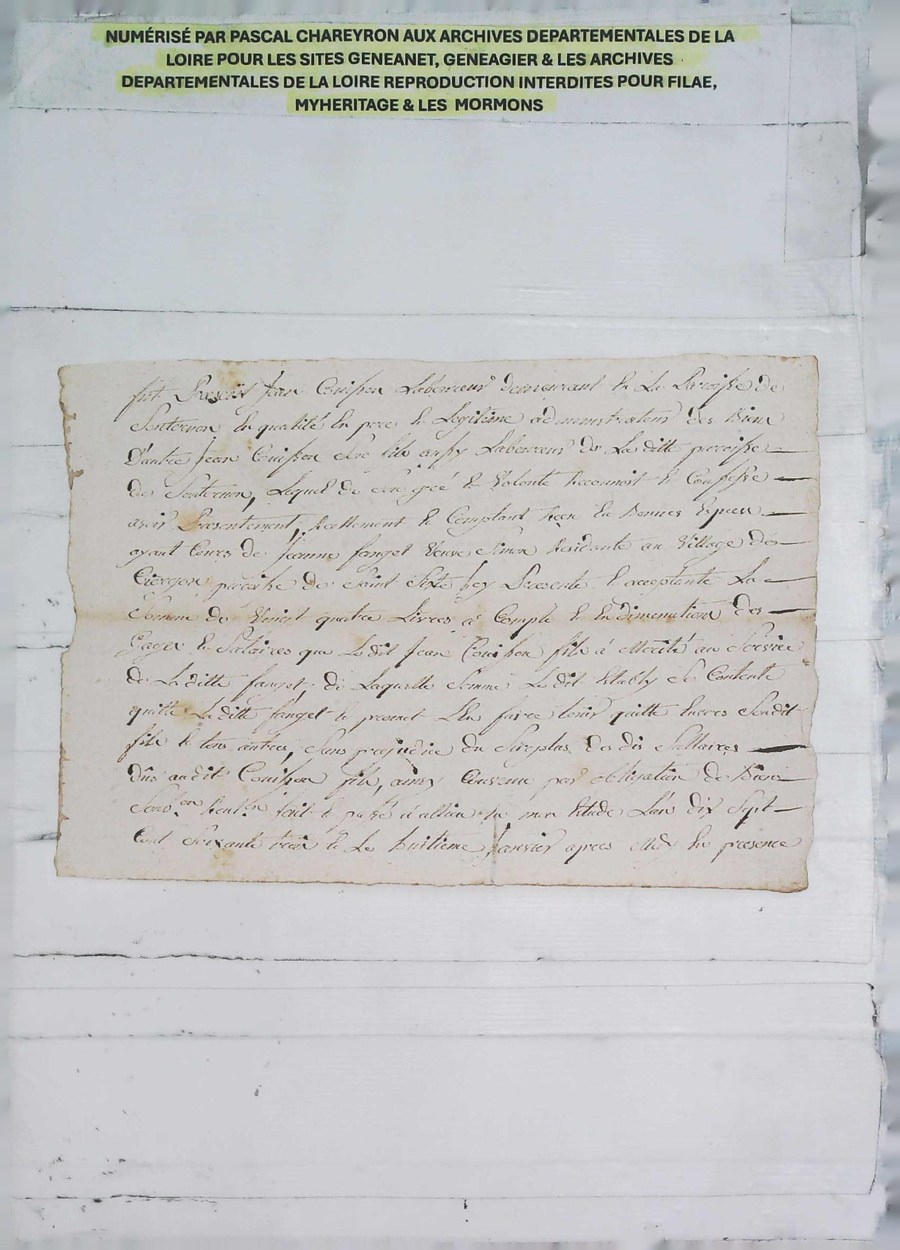 NUMÉRISÉ PAR PASCAL CHAREYRON AUX ARCHIVES DEPARTEMENTALES DE LA
LOIRE POUR LES SITES GENEANET, GENEAGIER & LES ARCHIVES
DEPARTEMENTALES DE LA LOIRE REPRODUCTION INTERDITES POUR FILAE,
MYHERITAGE & LES MORMONS
fut Present Jean Coiffon Laboureur demeurant en La Paroisse de
Souternon en qualité de pere & Legitime administrateur des Biens
D'autre Jean son fils aussy Laboureur de La ditte paroisse
de Souternon, Lequel de son gré & Volonté Reconnoit & Confesse
avoir Presentement, Reellement & Comptant Receu En Bonnes Especes
ayant Cours de Jeanne fanget Veuve Simon Residante au Village de
paroisse de Saint Sixte Icy Presente & acceptante La
Somme de Vingt quatre Livres à Compte & En Dimenution des
Gages & Salaires que Ledit Jean fils à Merité au Service
de La ditte fanget, de Laquelle Somme Le dit Etably Se Contente
quitte La ditte fanget & promet L'En faire tenir quitte Envers Sondit
fils & tous autres, Sans prejudice du Surplus des dis Sallaires
dus audit fils, ainsy Convenu par obligation de Biens
fait & passé à allieu En mon Etude L'an dix Sept
Cent Soixante trois & Le huitieme janvier apres Midy En presence